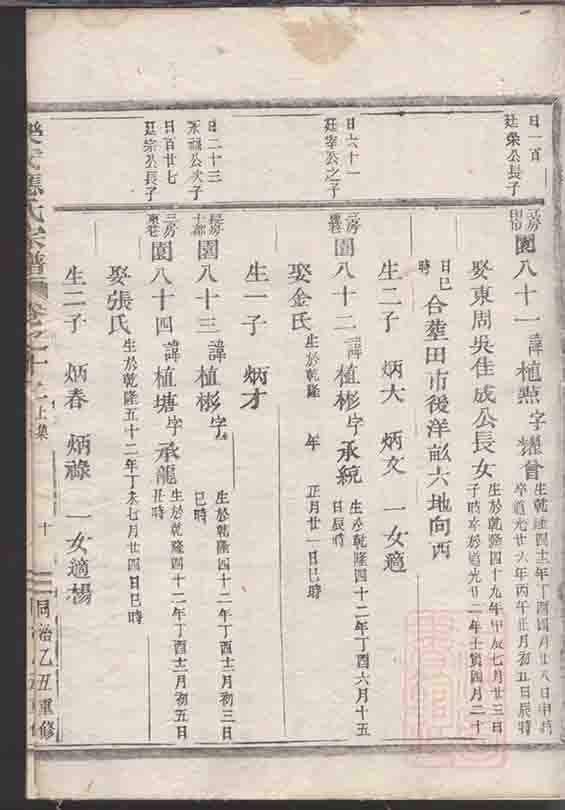 日一百
廷榮公長子
三房
園八十一諱植點字耀曾
生乾隆四十二年丁酉四月廿八日申時
卒道光廿六年丙午正月初五日辰時
娶東周吳佳成公長女
生於乾隆四十九年甲辰七月廿三日
子時卒於道光廿二年壬寅四月二十
日巳
時
合塟田市後洋畆六地向西
生二子 炳大 炳文 一女適
日六十一
廷宰公之子
三房
園八十二諱植彬字承統
生於乾隆四十二年丁酉六月十五
日辰時
娶金氏
生於乾隆 年 正月廿一日巳時
生一子 炳才
日二十三
公次子
園八十三諱植彬字
生於乾隆四十二年丁酉十二月初三日
巳時
日百廿七
廷宗公長子
三房
園八十四諱植塘字承龍
生於乾隆四十二年丁酉十二月初五日
丑時
娶張氏
生於乾隆五十二年丁未七月廿四日巳時
生二子 炳春 炳祿 一女適楊
氏宗譜 卷之十 上集 十 同治乙丑重修